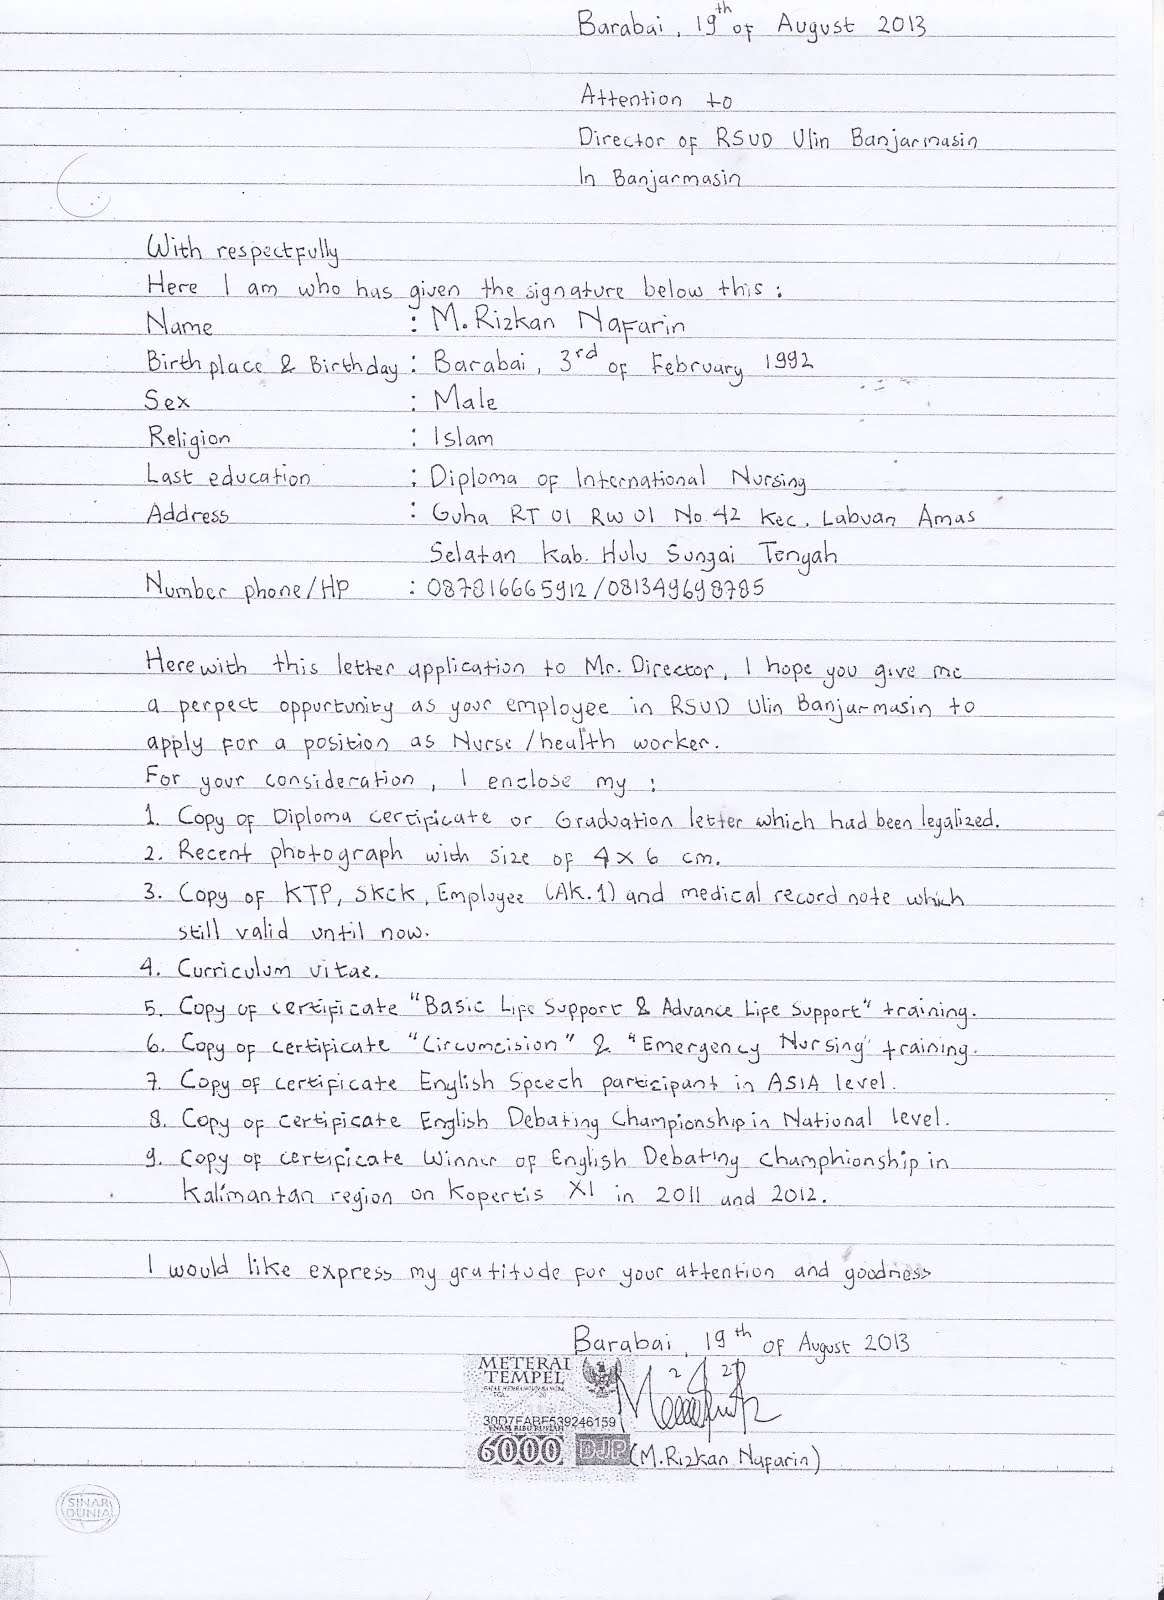 Barabai, 19th of August 2013
Attention to
Director of RSUD Ulin Banjarmasin
In Banjarmasin
With respectfully
Here I am who has given the signature below this :
Name : M. Rizkan Nafarin
Birth place & Birthday : Barabai, 3rd of February 1992
Sex : Male
Religion : Islam
Last education : Diploma of International Nursing
Address : Guha RT 01 RW 01 No. 42 Kec. Labuan Amas
Selatan Kab. Hulu Sungai Tengah
Number phone/HP : 087816665912/081349698785
Herewith this letter application to Mr. Director, I hope you give me
a perpect oppurtunity as your employee in RSUD Ulin Banjarmasin to
apply for a position as Nurse/health worker.
For your consideration, I enclose my :
1. Copy of Diploma certificate or Graduation letter which had been legalized.
2. Recent photograph with size of 4 x 6 cm.
3. Copy of KTP, SKCK, Employee (AK.1) and medical record note which
still valid until now.
4. Curriculum vitae.
5. Copy of certificate "Basic Life Support & Advance Life Support" training.
6. Copy of certificate "Circumcision" & "Emergency Nursing" training.
7. Copy of certificate English Speech participant in ASIA level.
8. Copy of certificate English Debating Championship in National level.
9. Copy of certificate Winner of English Debating Champhionship in
Kalimantan region on Kopertis XI in 2011 and 2012.
I would like express my gratitude for your attention and goodness
Barabai, 19th of August 2013
METERAI
TEMPEL
30D7FABF539246159
ENAM RIBU RUPIAH
6000 DJP
(M. Rizkan Nafarin)
SINAR
DUNIA